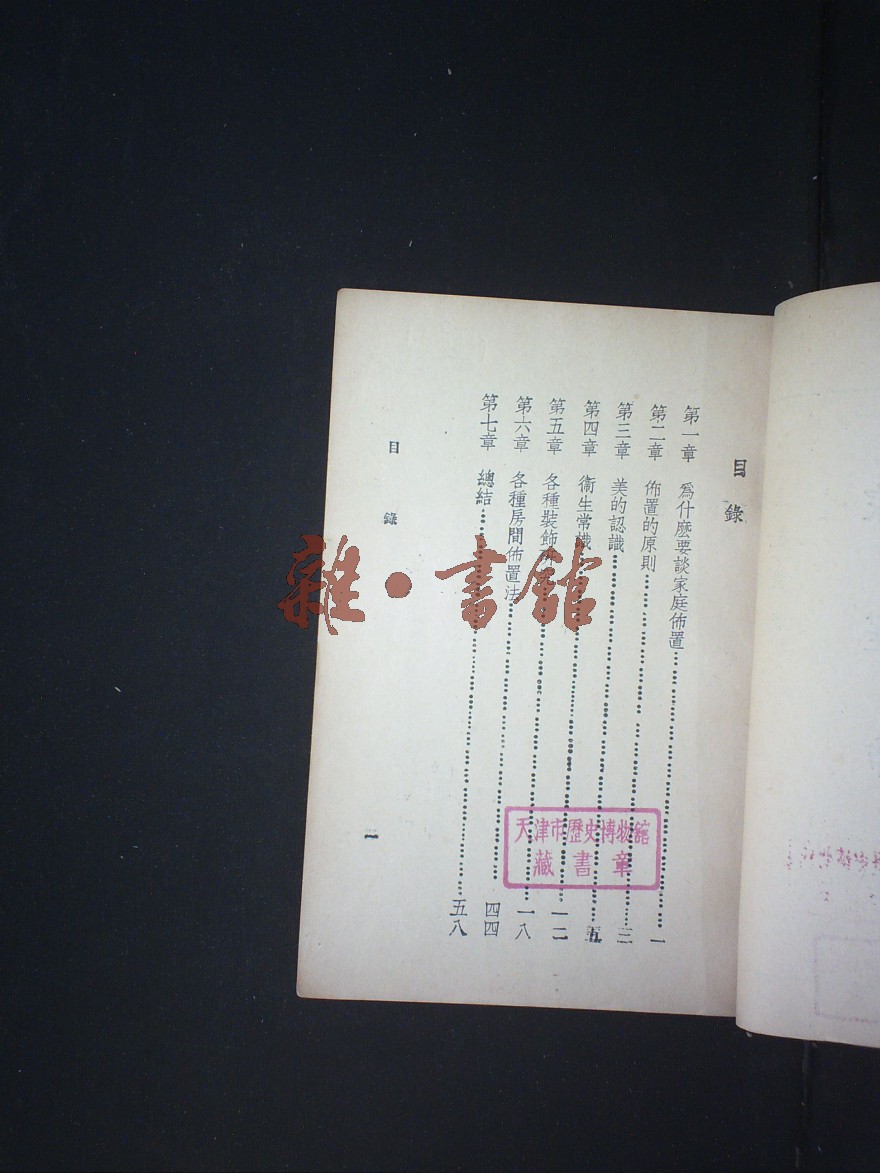 目錄
第一章 爲什麽要談家庭佈置……一
第二章 佈置的原則……三
第三章 美的認識……五
第四章 衞生常識……一二
第五章 各種裝飾……一八
第六章 各種房間佈置法……四四
第七章 總結……五八
目錄
一
天津市歷史博物舘
藏書章
雜·書舘